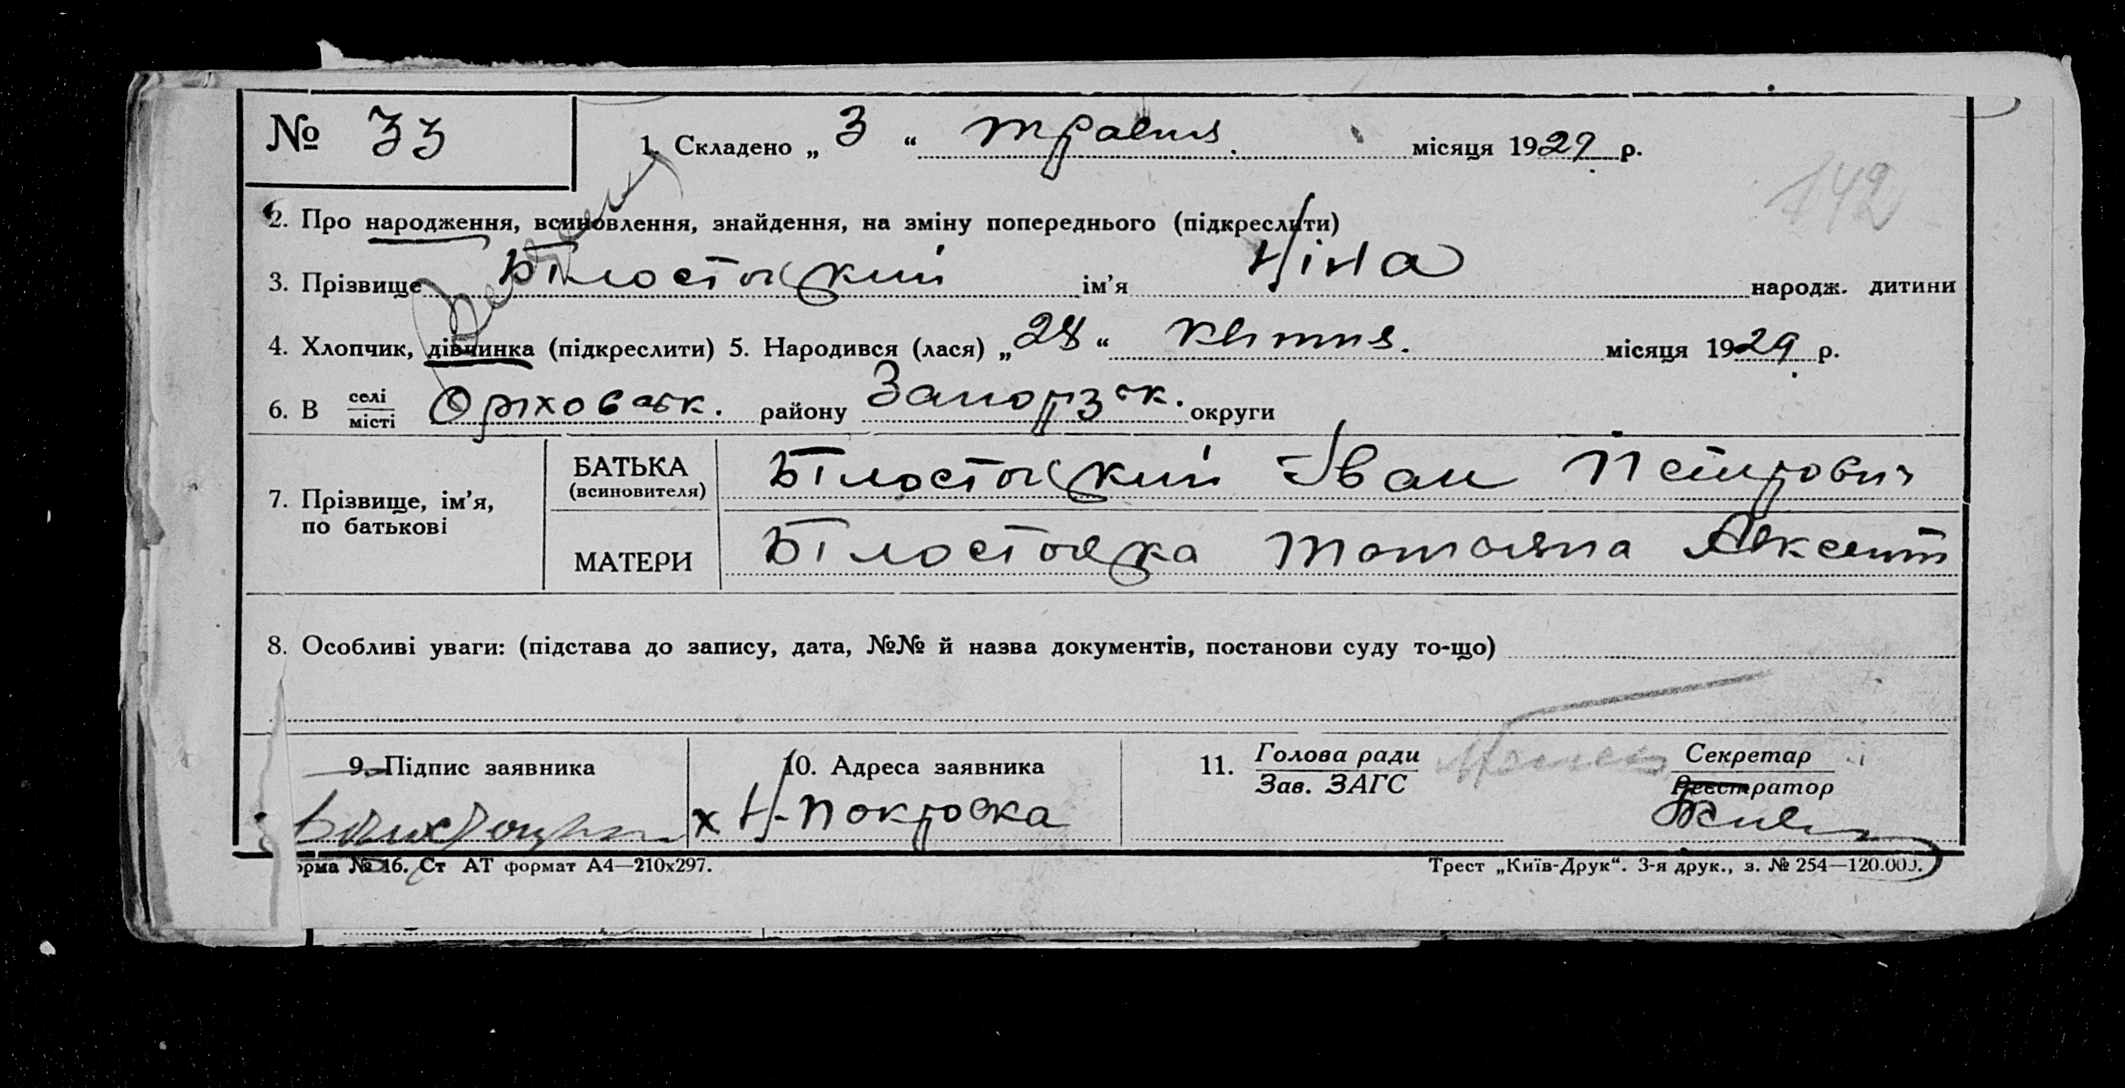 № 33
1. Складено „ 3 “ травня місяця 1929 р.
142
2. Про народження, всиновлення, знайдення, на зміну попереднього (підкреслити)
3. Прізвище Білостоцький ім’я Ніна народж. дитини
4. Хлопчик, дівчинка (підкреслити) 5. Народився (лася) „ 28 “ квітня. місяця 1929 р.
6. В селі місті Оріховськ. району Запорізьк. округи
7. Прізвище, ім’я, по батькові
БАТЬКА (всиновителя) Білостоцький Іван Петрович
МАТЕРИ Білостоцка Татьяна Авксент
8. Особливі уваги: (підстава до запису, дата, №№ й назва документів, постанови суду то-що)
9. Підпис заявника
10. Адреса заявника
х Н-Покровка
11. Голова ради Зав. ЗАГС
Секретар Реєстратор
орма № 16. Ст АТ формат А4—210х297.
Трест „Київ-Друк“. 3-я друк., з. № 254—120.000.